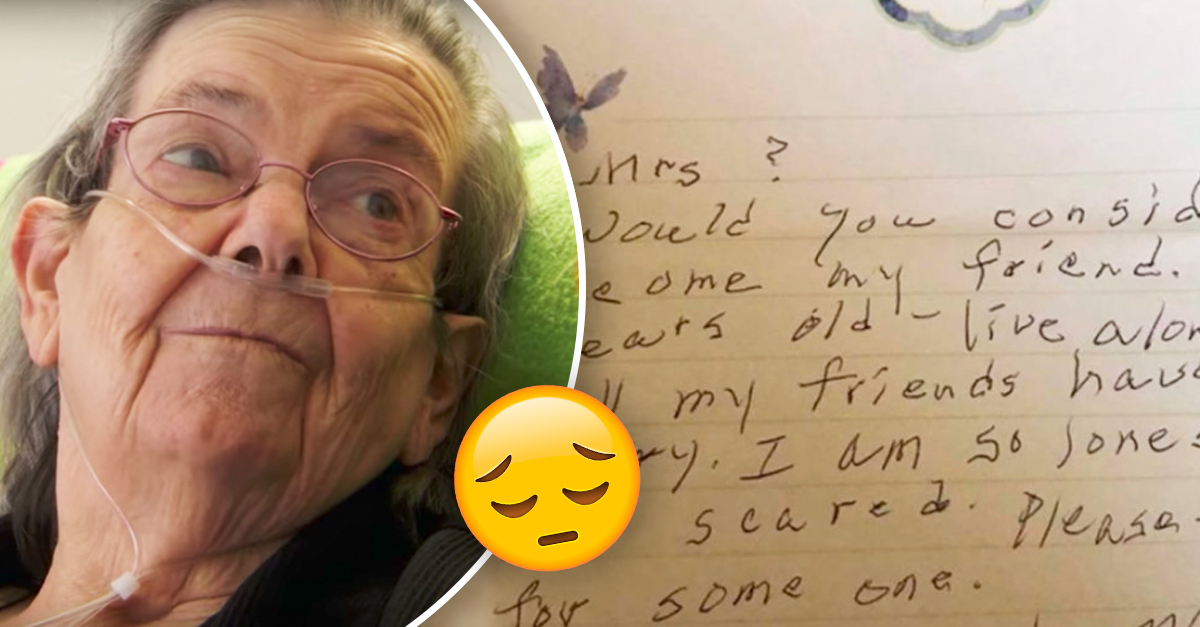 Mrs ?
Would you consid
e ome my friend.
ears old - live alon
ll my friends have
ry. I am so lones
scared. Please
for some one.